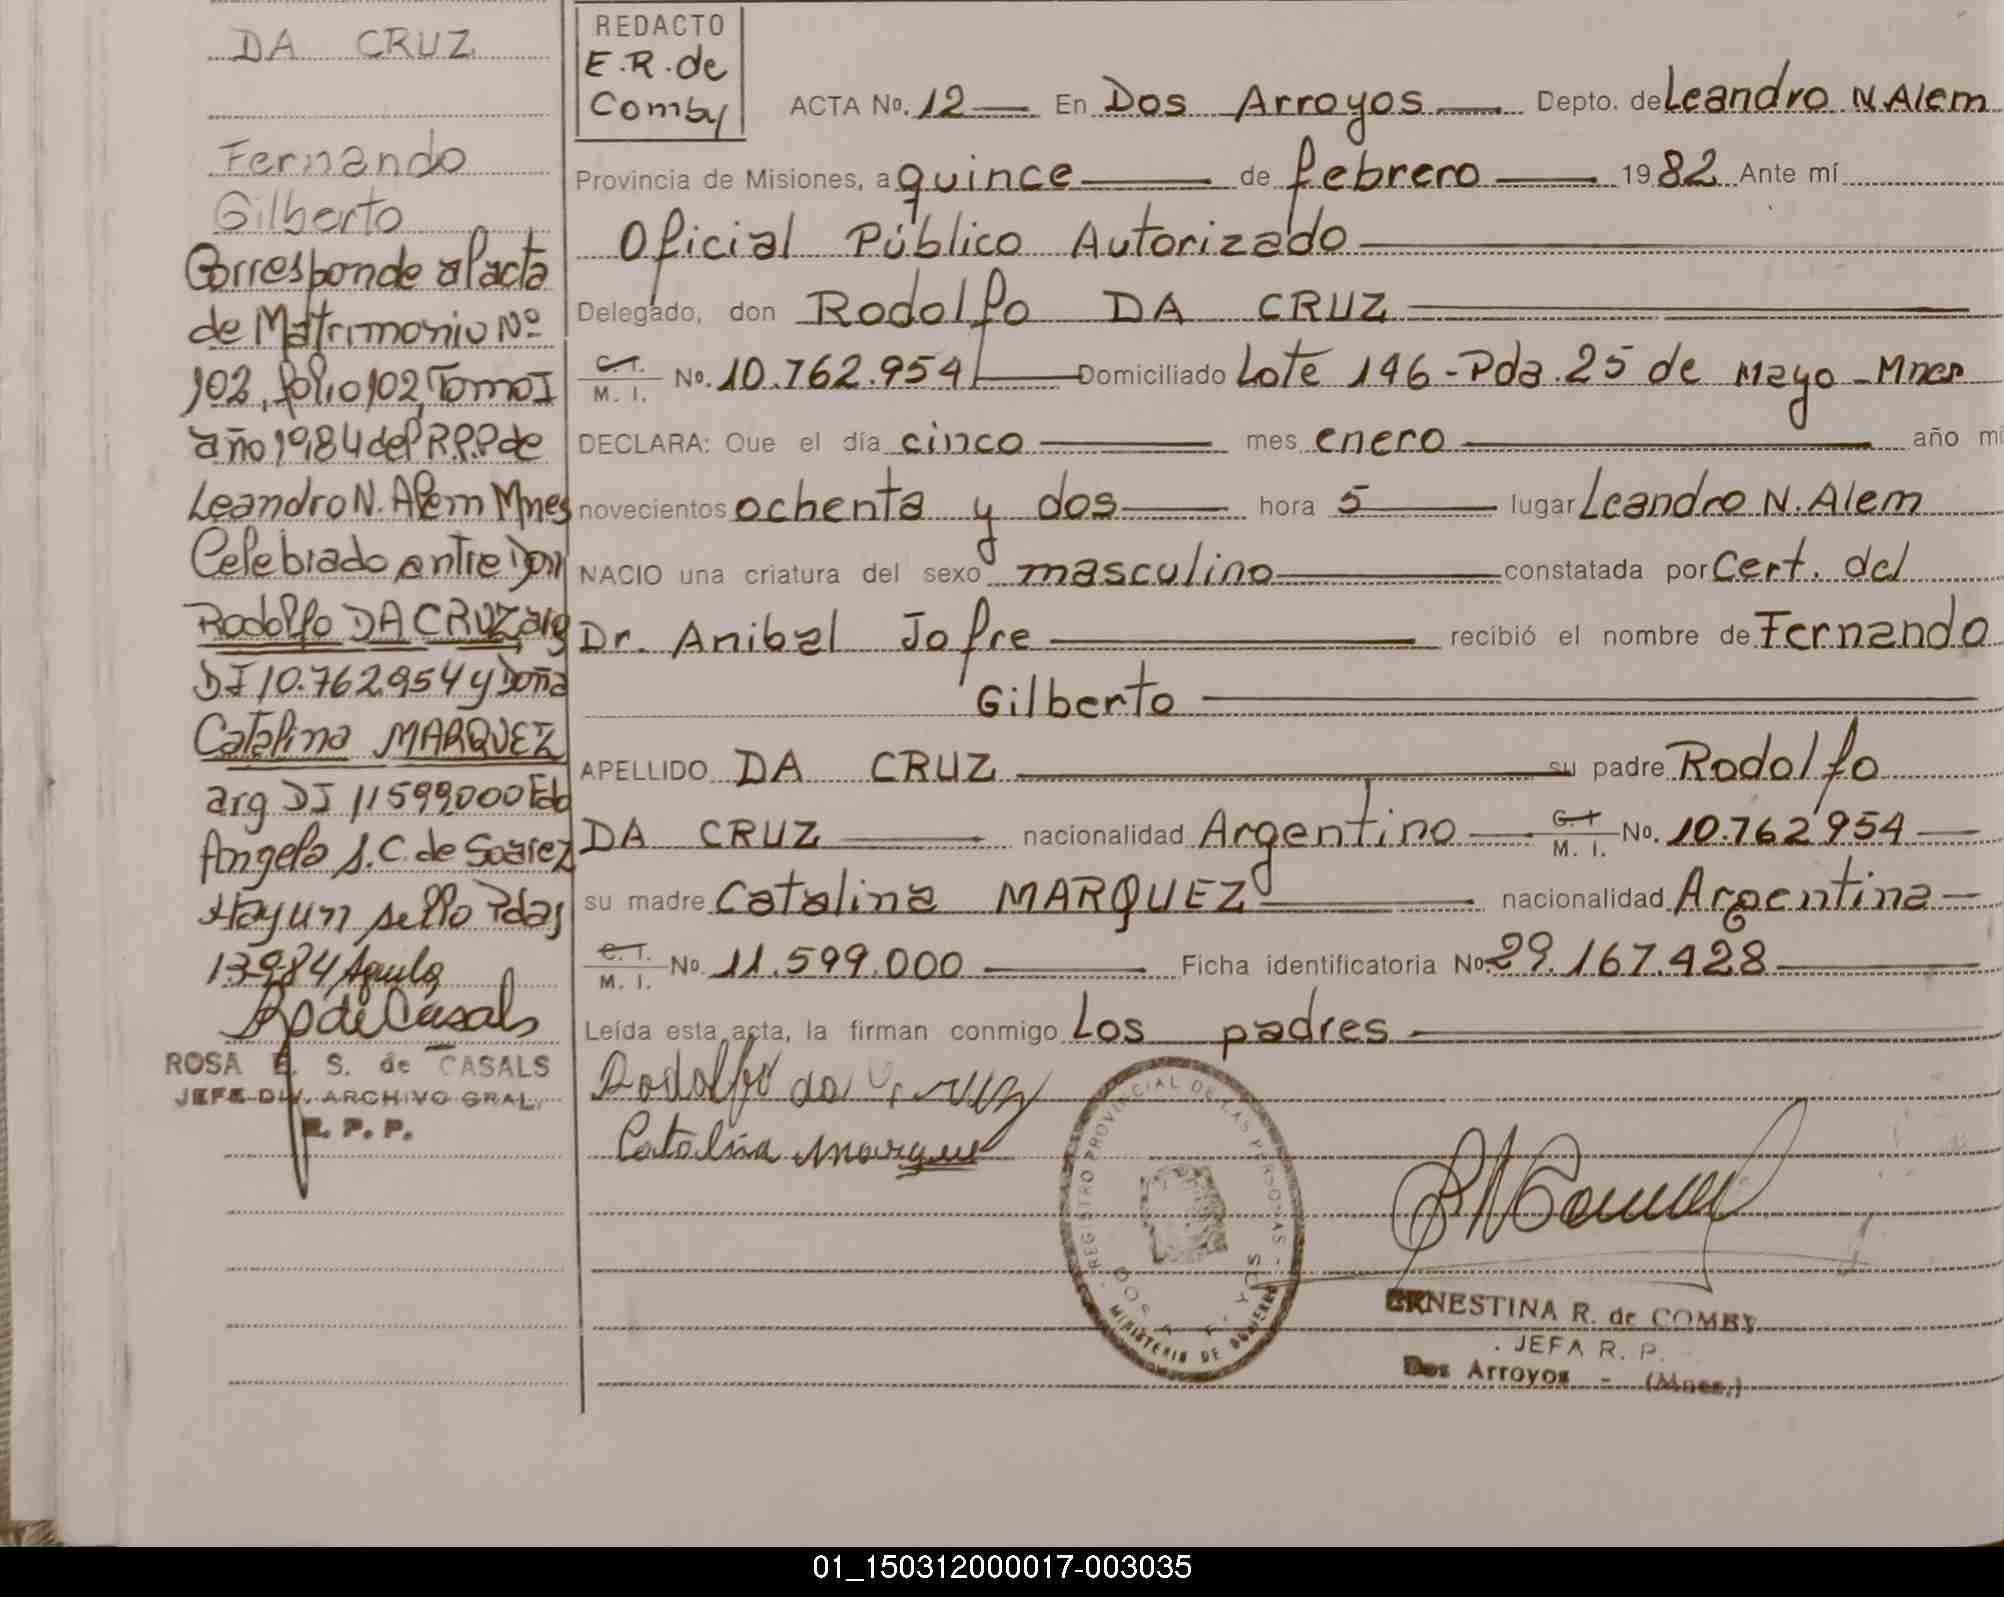 DA CRUZ
Fernando
Gilberto
Corresponde al acta
de Matrimonio Nº
102, folio 102, Tomo I
año 1984 del R.P.P de
Leandro N. Alem Mnes
Celebrado entre Don
Rodolfo DA CRUZ arg
DI 10.762.954 y Doña
Catalina MARQUEZ
arg DI 11599000 Fdo
Angela S.C. de Soarez
Hay un sello Pdas
13984
ROSA E. S. de CASALS
JEFE DIV. ARCHIVO GRAL.
R. P. P.
REDACTO
E.R. de
Comby
ACTA No. 12 En Dos Arroyos Depto. de Leandro N Alem
Provincia de Misiones, a quince de febrero 1982 Ante mí
Oficial Público Autorizado
Delegado, don Rodolfo DA CRUZ
C.I. M. I. No. 10.762.954 Domiciliado Lote 146 - Pda. 25 de Mayo - Mnes
DECLARA: Que el día cinco mes enero año mi
novecientos ochenta y dos hora 5 lugar Leandro N. Alem
NACIO una criatura del sexo masculino constatada por Cert. del
Dr. Anibal Jofre recibió el nombre de Fernando
Gilberto
APELLIDO DA CRUZ su padre Rodolfo
DA CRUZ nacionalidad Argentino C.I. M. I. No. 10.762.954
su madre Catalina MARQUEZ nacionalidad Argentina
C.I. M. I. No. 11.599.000 Ficha identificatoria No. 29.167.428
Leída esta acta, la firman conmigo Los padres
Rodolfo da Cruz
Catalina Marquez
REGISTRO PROVINCIAL DE LAS PERSONAS
MINISTERIO DE GOBIERNO
ERNESTINA R. de COMBY
JEFA R. P.
Dos Arroyos - (Mnes.)
01_150312000017-003035